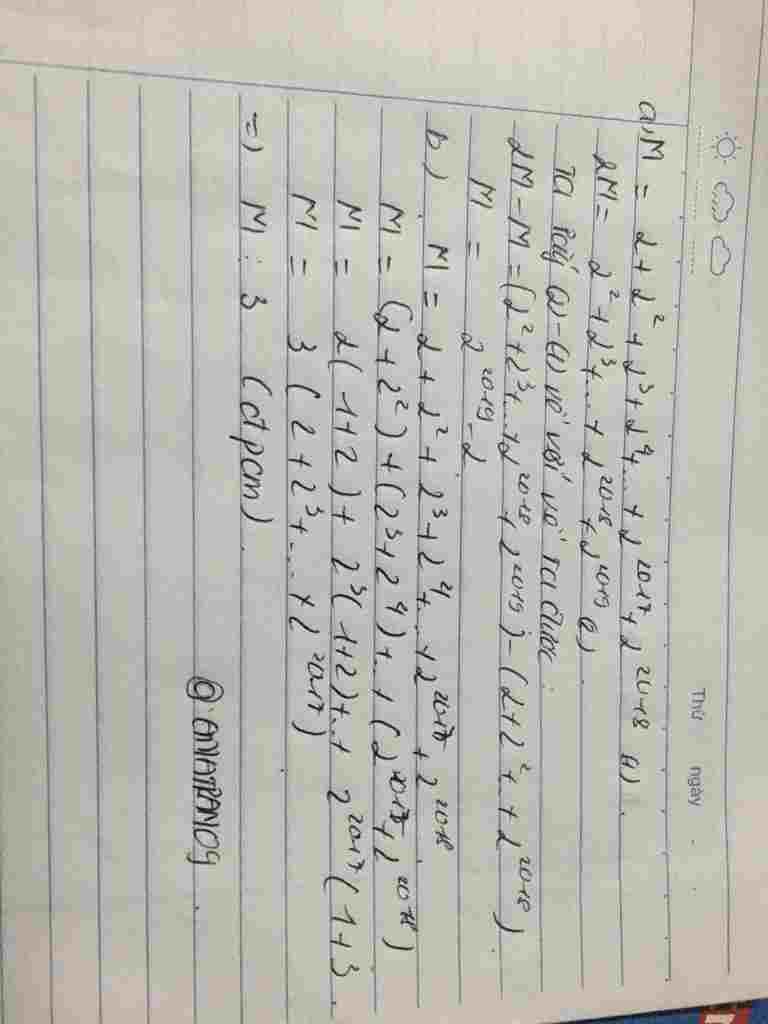 Thứ ngày
a, M = 2 + 2² + 2³ + 2⁴ + ... + 2²⁰¹⁷ + 2²⁰¹⁸ (1)
2M = 2² + 2³ + ... + 2²⁰¹⁸ + 2²⁰¹⁹ (2)
Ta lấy (2) - (1) vế với vế ta được:
2M - M = (2² + 2³ + ... + 2²⁰¹⁸ + 2²⁰¹⁹) - (2 + 2² + ... + 2²⁰¹⁸)
M = 2²⁰¹⁹ - 2
b) M = 2 + 2² + 2³ + 2⁴ + ... + 2²⁰¹⁷ + 2²⁰¹⁸
M = (2 + 2²) + (2³ + 2⁴) + ... + (2²⁰¹⁷ + 2²⁰¹⁸)
M = 2(1+2) + 2³(1+2) + ... + 2²⁰¹⁷(1+3
M = 3(2 + 2³ + ... + 2²⁰¹⁷)
=> M ⋮ 3 (đpcm)